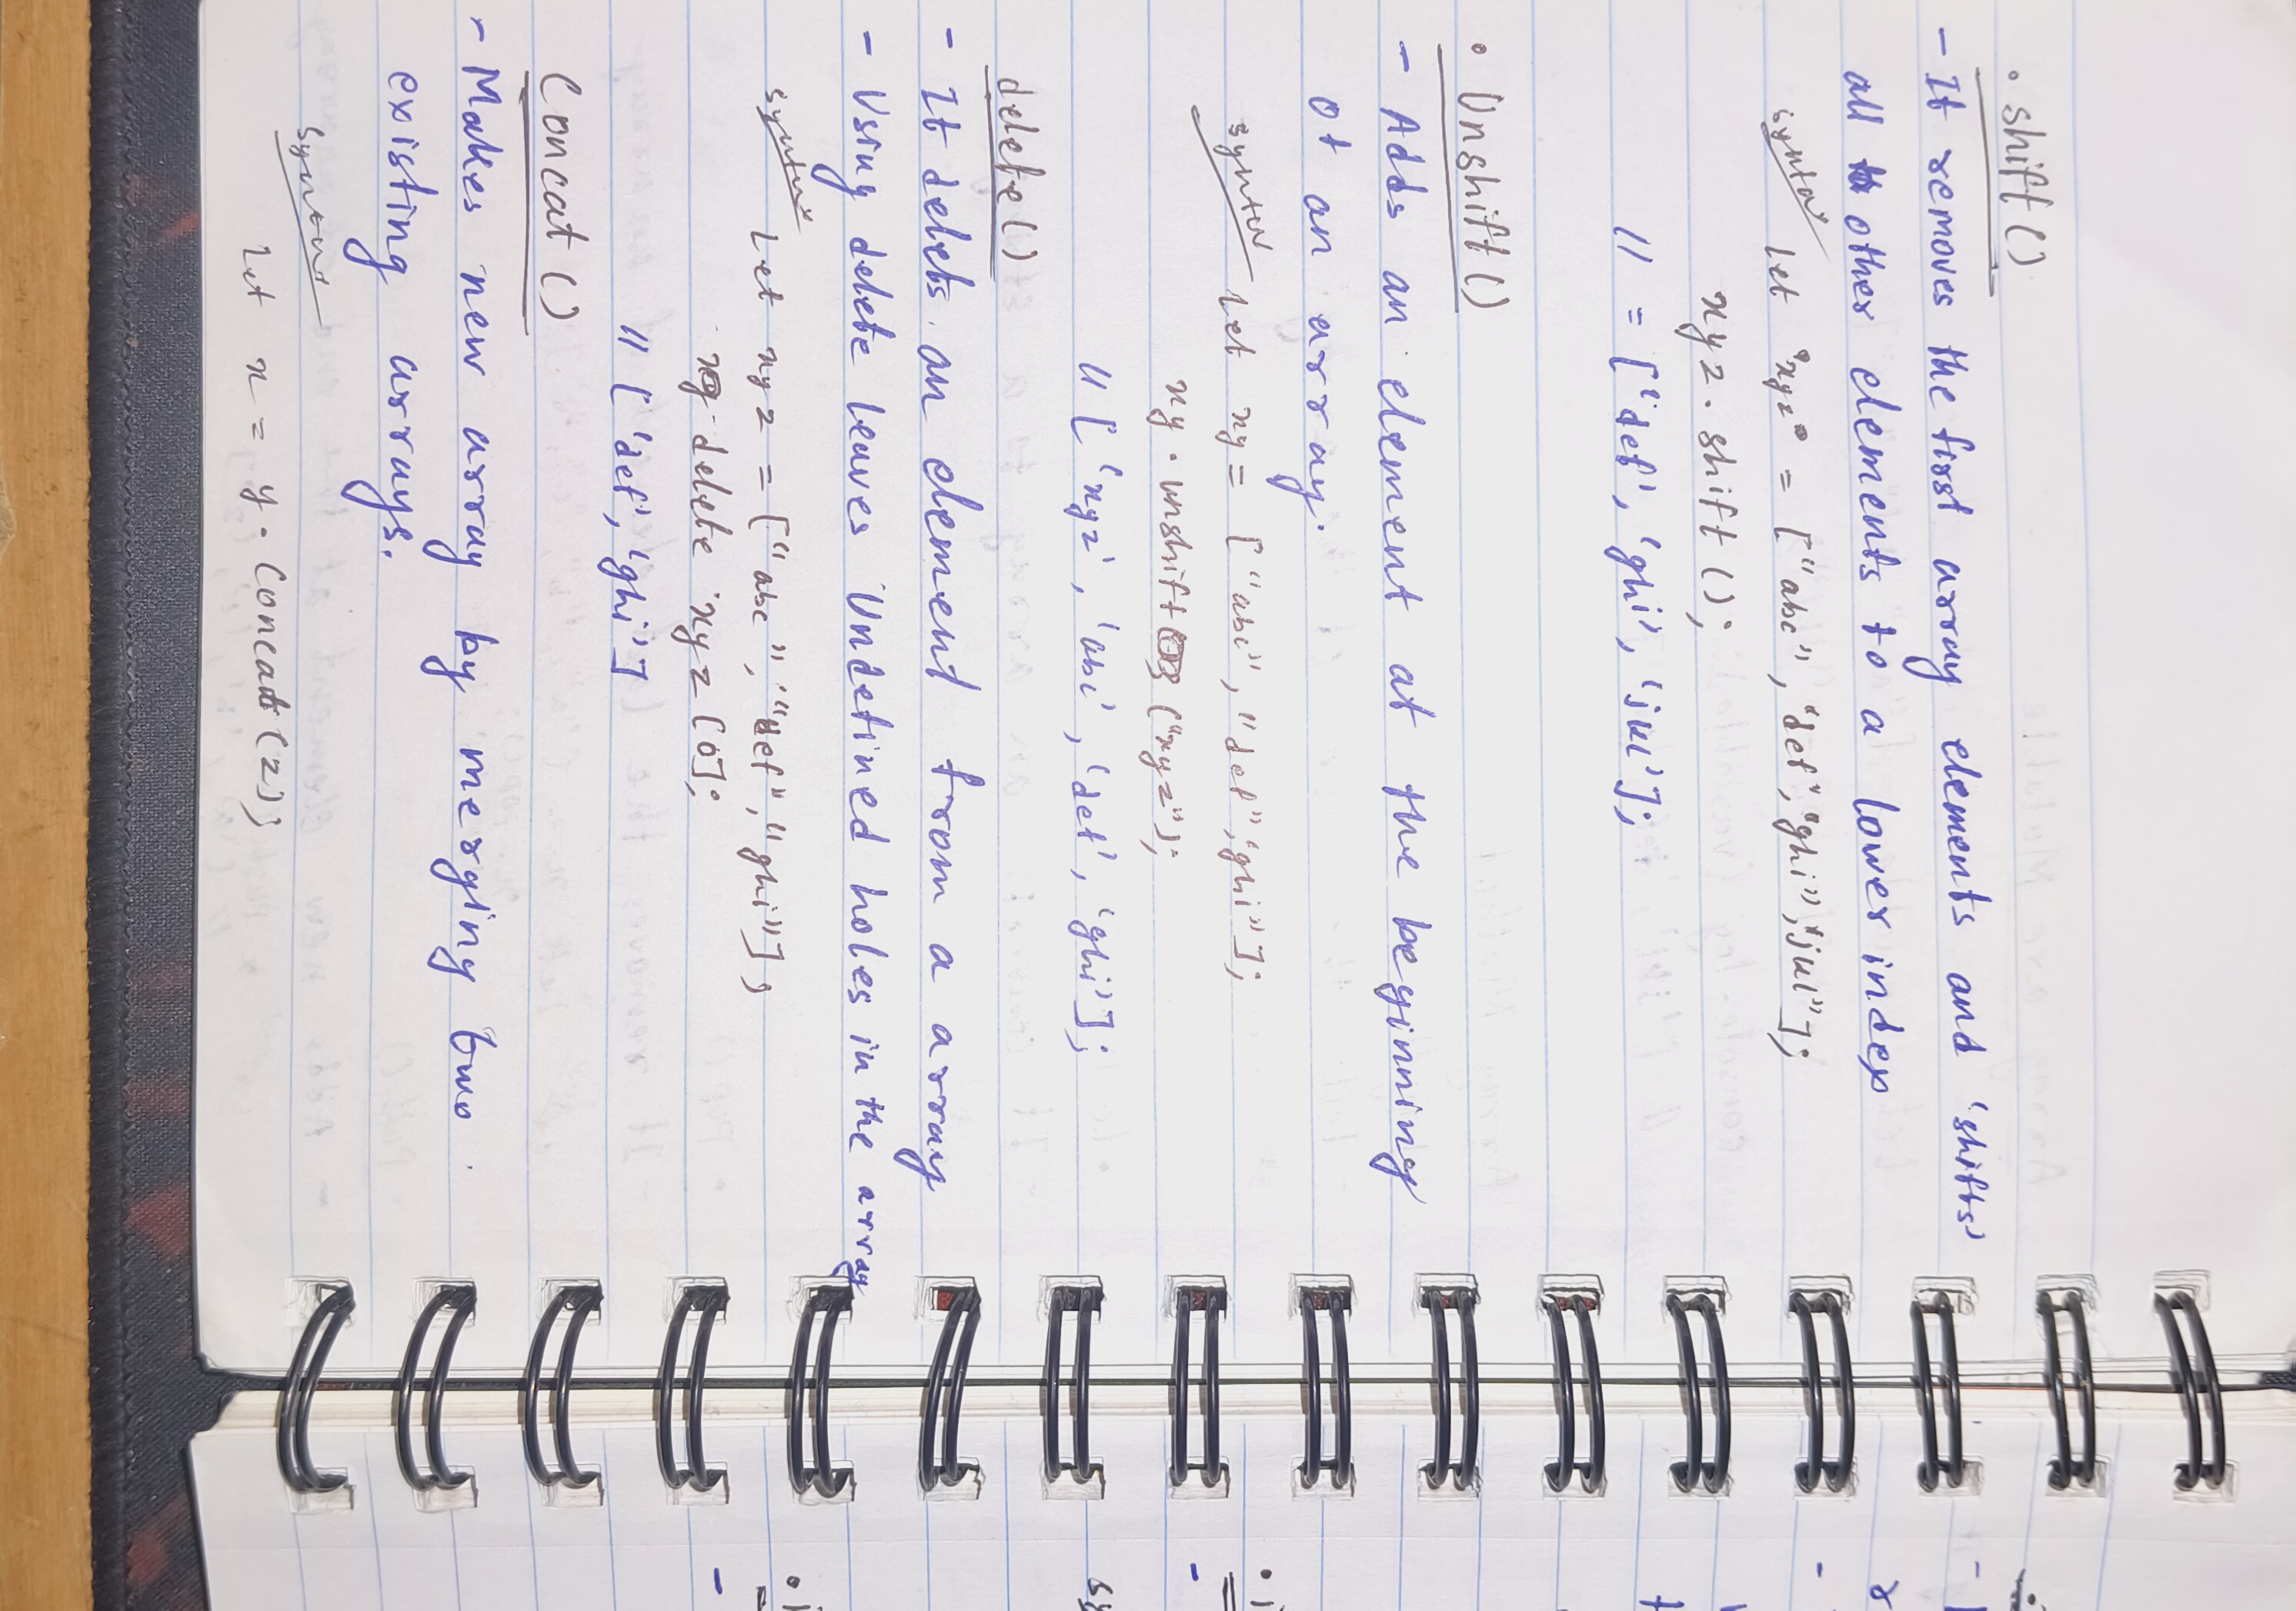 • shift()
- It removes the first array elements and 'shifts'
all other elements to a lower index
syntax let "xyz" = ["abc", "def", "ghi", "jkl"];
xyz. shift ();
// = ['def', 'ghi', 'jkl'];
• Unshift()
- Adds an element at the beginning
of an array.
syntax Let xy = ["abc", "def", "ghi"];
xy. unshift ("xyz");
// [ 'xyz', 'abc', 'def', 'ghi'];
delete()
- It delets an element from a array
- Using delete leaves Undefined holes in the array
syntax Let xyz = ["abc", "def", "ghi"];
delete xyz [0];
// [ 'def', 'ghi']
Concat ()
- Makes new array by merging two
existing arrays.
Syntax
Let x = y. Concat (z);